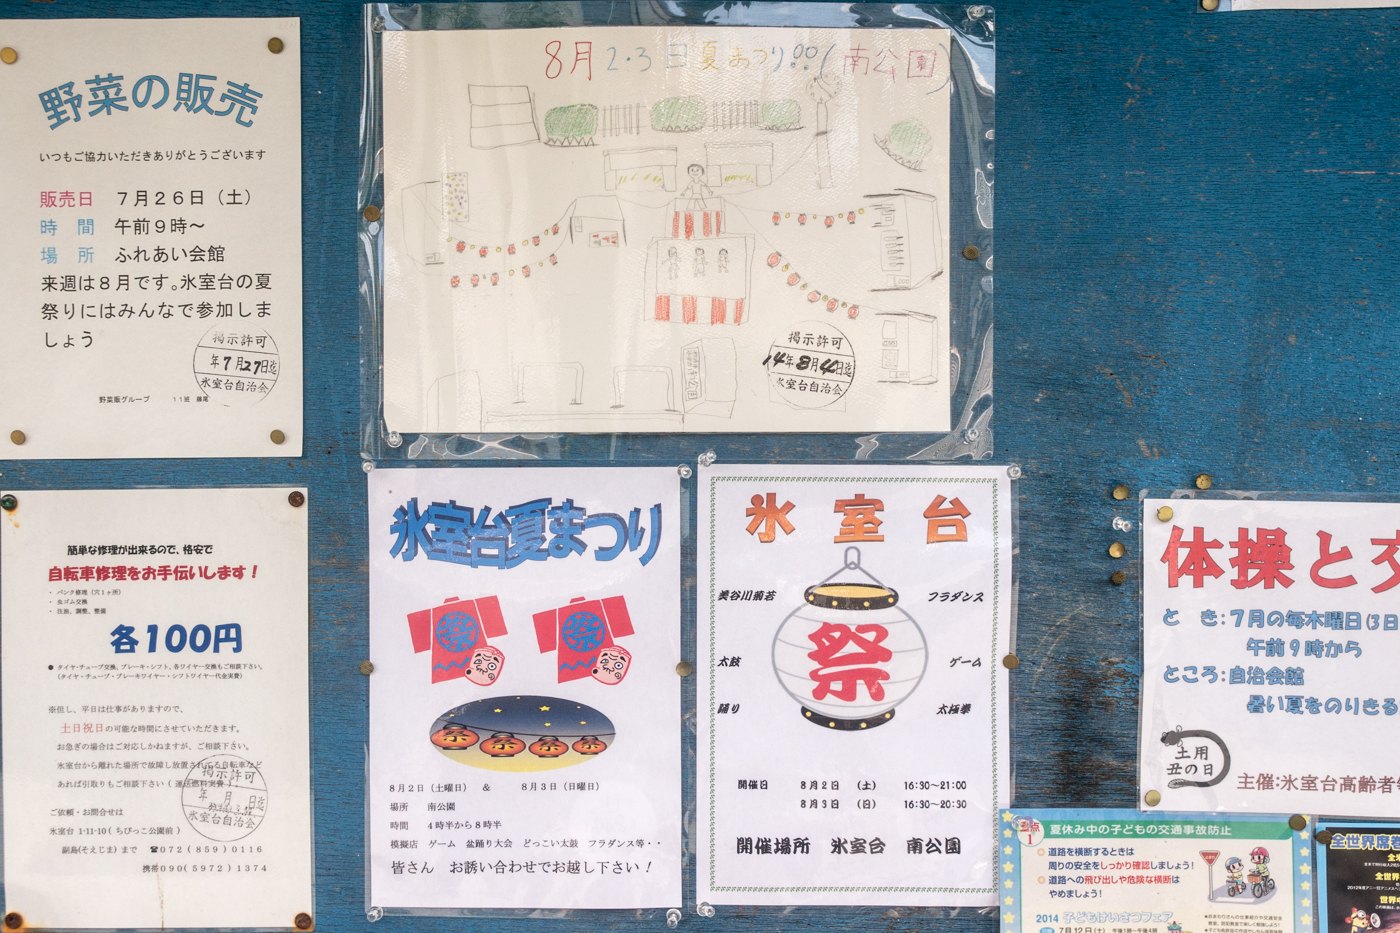 野菜の販売
いつもご協力いただきありがとうございます
販売日 7月26日（土）
時間 午前9時～
場所 ふれあい会館
来週は8月です。氷室台の夏
祭りにはみんなで参加しま
しょう
掲示許可
年7月27日迄
氷室台自治会
野菜販グループ 11班
8月2・3日夏まつり!!(南公園)
掲示許可
14年8月4日迄
氷室台自治会
簡単な修理が出来るので、格安で
自転車修理をお手伝いします！
・ パンク修理（穴1ヶ所）
・ 虫ゴム交換
・ 注油、調整、整備
各100円
● タイヤ・チューブ交換、ブレーキ・シフト、各ワイヤー交換もご相談下さい。
（タイヤ・チューブ・ブレーキワイヤー・シフトワイヤー代金実費）
※但し、平日は仕事がありますので、
土日祝日の可能な時間にさせていただきます。
お急ぎの場合はご対応しかねますが、ご相談下さい。
氷室台から離れた場所で故障し放置されてる自転車など
あれば引取りもご相談下さい（運送燃料実費）
掲示許可
年 月 日迄
氷室台自治会
ご依頼・お問合せは
氷室台 1-11-10（ちびっこ公園前）
副島(そえじま) まで ☎072（859）0116
携帯090(5972)1374
氷室台夏まつり
祭
祭
祭 祭 祭 祭
8月2日（土曜日） & 8月3日（日曜日）
場所 南公園
時間 4時半から8時半
模擬店 ゲーム 盆踊り大会 どっこい太鼓 フラダンス等・・
皆さん お誘い合わせてお越し下さい！
氷室台
美谷川蘭菪
フラダンス
祭
太鼓
ゲーム
踊り
太極拳
開催日 8月2日 （土） 16:30～21:00
8月3日 （日） 16:30～20:30
開催場所 氷室台 南公園
体操と交
とき:7月の毎木曜日(3日
午前9時から
ところ:自治会館
暑い夏をのりきる
土用
丑の日
主催:氷室台高齢者
重点
1
夏休み中の子どもの交通事故防止
道路を横断するときは
周りの安全をしっかり確認しましょう！
道路への飛び出しや危険な横断は
やめましょう！
2014 子どもけいさつフェア
7月12日(土) 午後1時～午後4時
全世界席
全世界
世界中